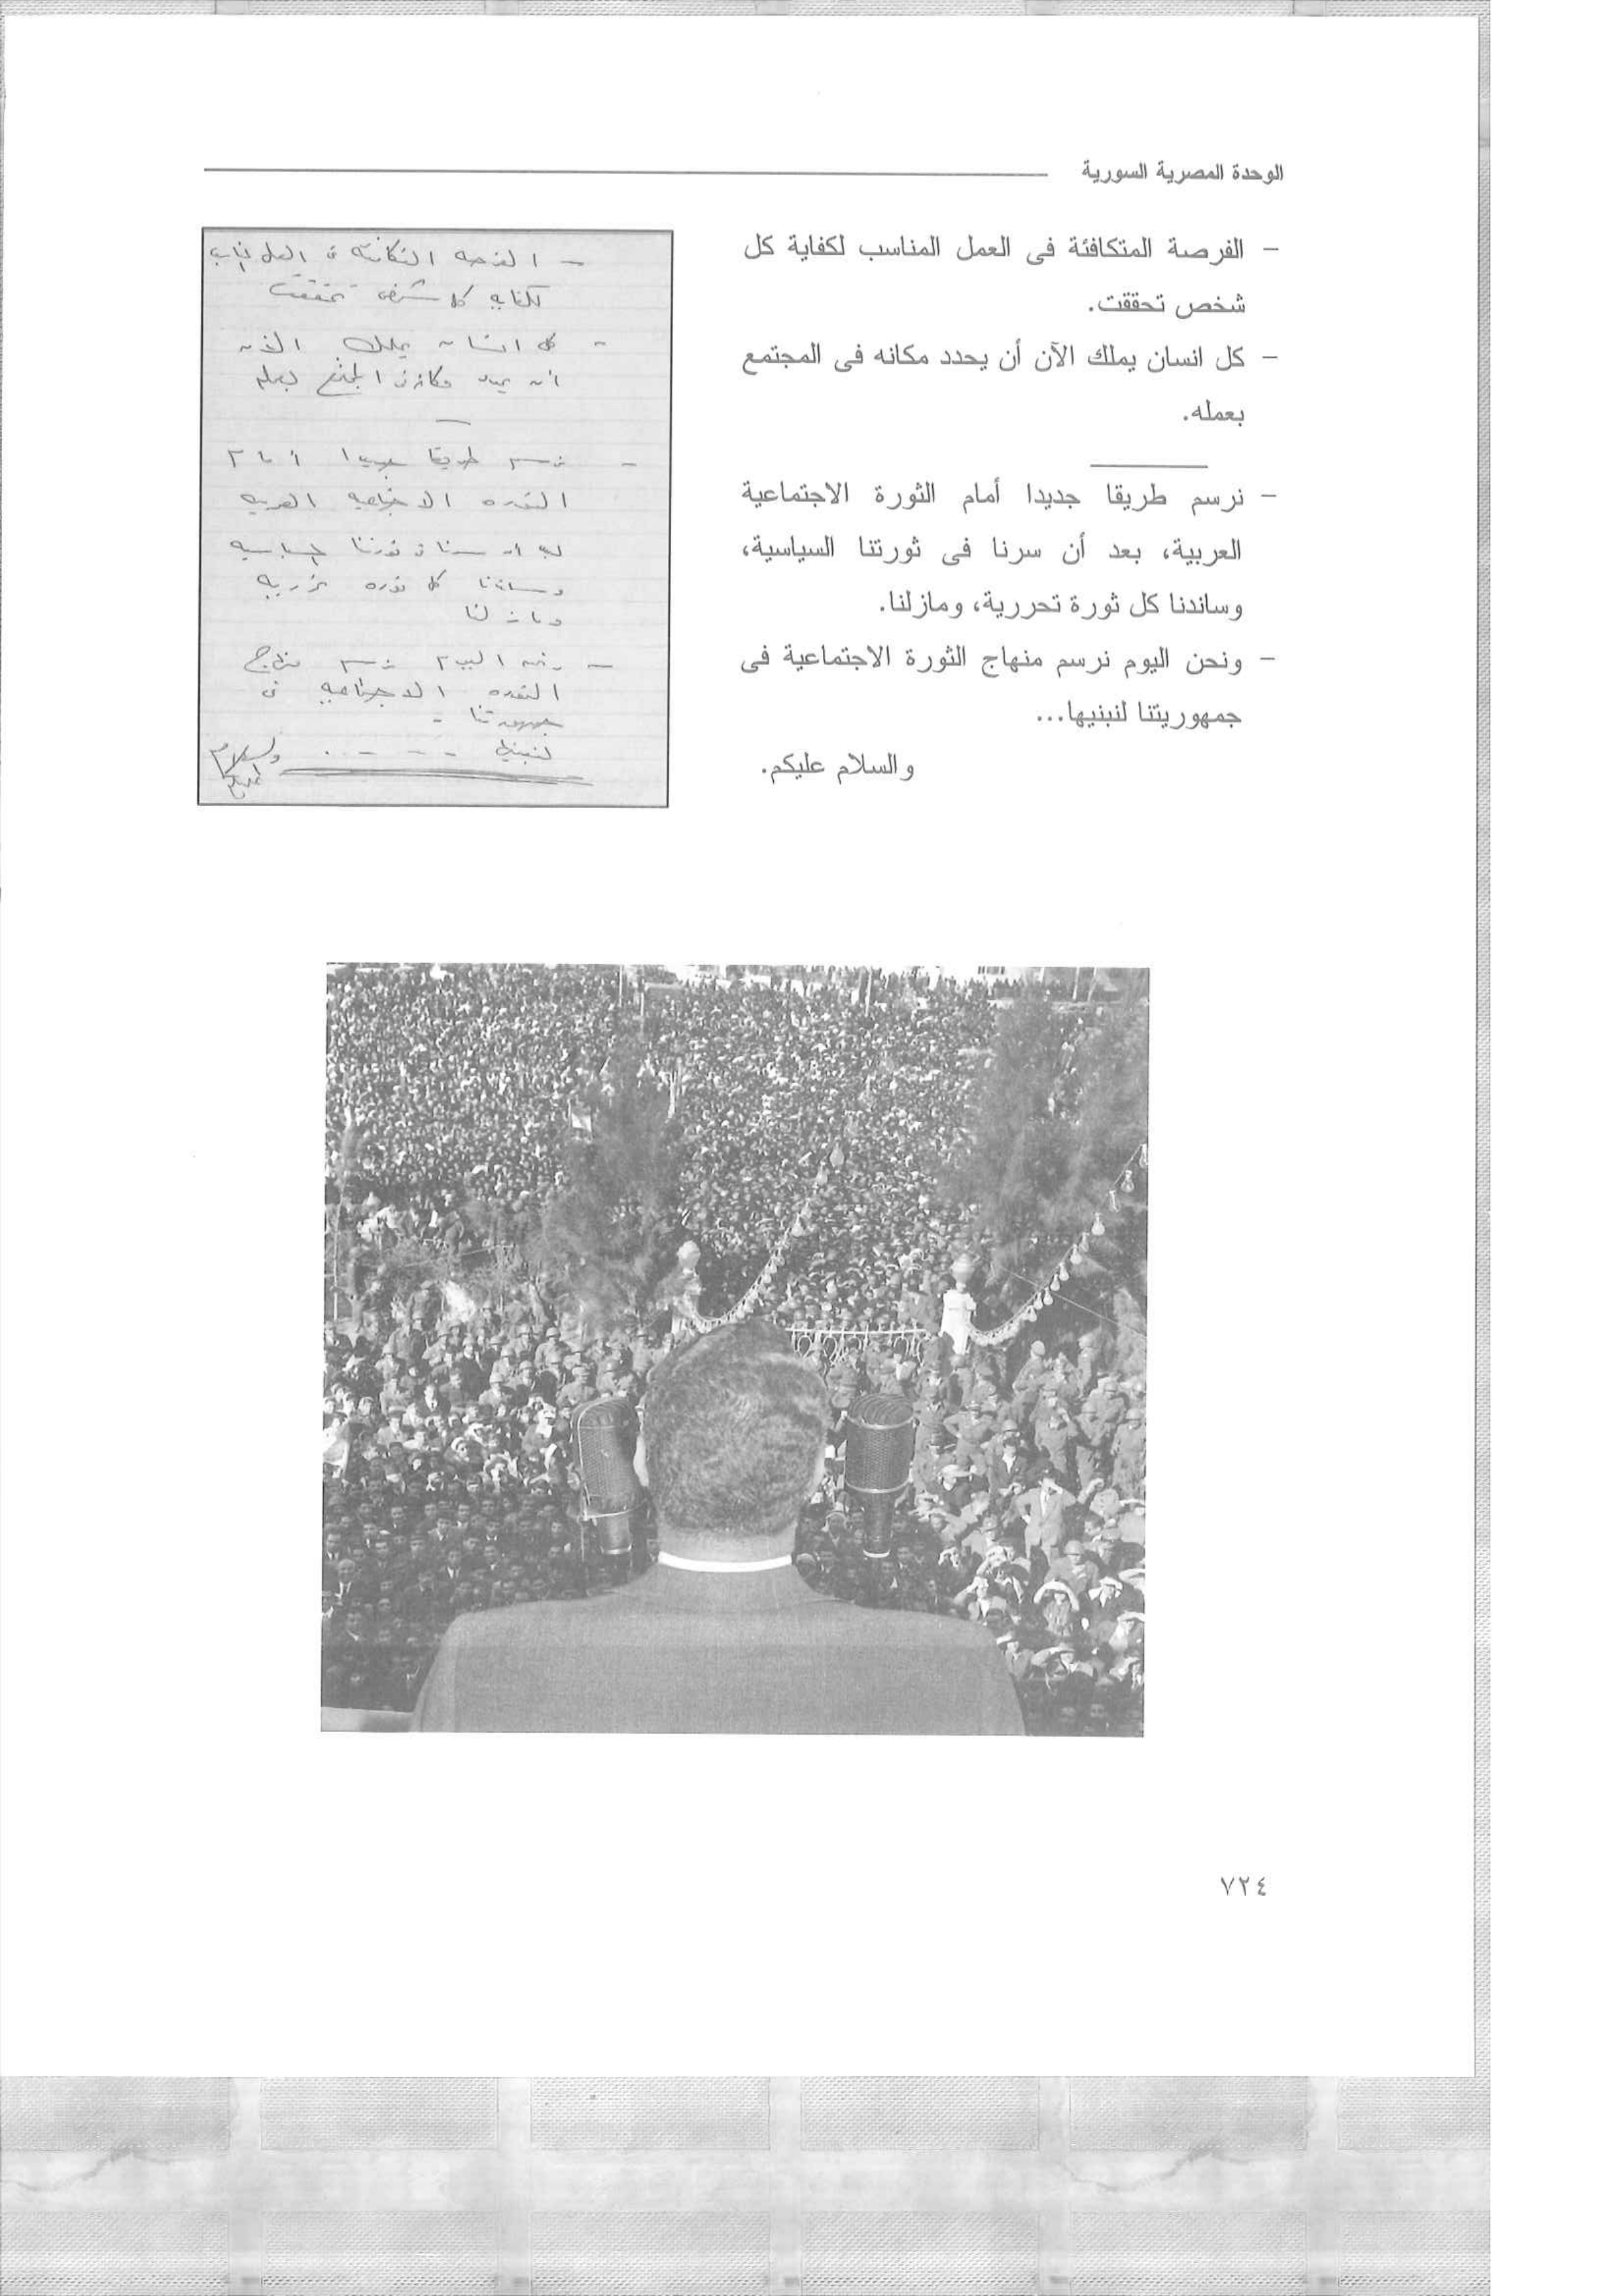 الوحدة المصرية السورية
– الفرصة المتكافئة فى العمل المناسب لكفاية كل
شخص تحققت.
– كل انسان يملك الآن أن يحدد مكانه فى المجتمع
بعمله.
– نرسم طريقا جديدا أمام الثورة الاجتماعية
العربية، بعد أن سرنا فى ثورتنا السياسية،
وساندنا كل ثورة تحررية، ومازلنا.
– ونحن اليوم نرسم منهاج الثورة الاجتماعية فى
جمهوريتنا لنبنيها...
والسلام عليكم.
– الفرصه المتكافئه فى العمل المناسب
لكفايه كل شخص تحققت
– كل انسان يملك الآن
أن يحدد مكانه فى المجتمع بعمله
– نرسم طريقا جديدا أمام
الثوره الاجتماعيه العربيه
بعد أن سرنا فى ثورتنا السياسيه
وساندنا كل ثوره تحرريه
ومازلنا
– ونحن اليوم نرسم منهاج
الثوره الاجتماعيه فى
جمهوريتنا -
لنبنيها - - - . والسلام
عليكم
٧٢٤